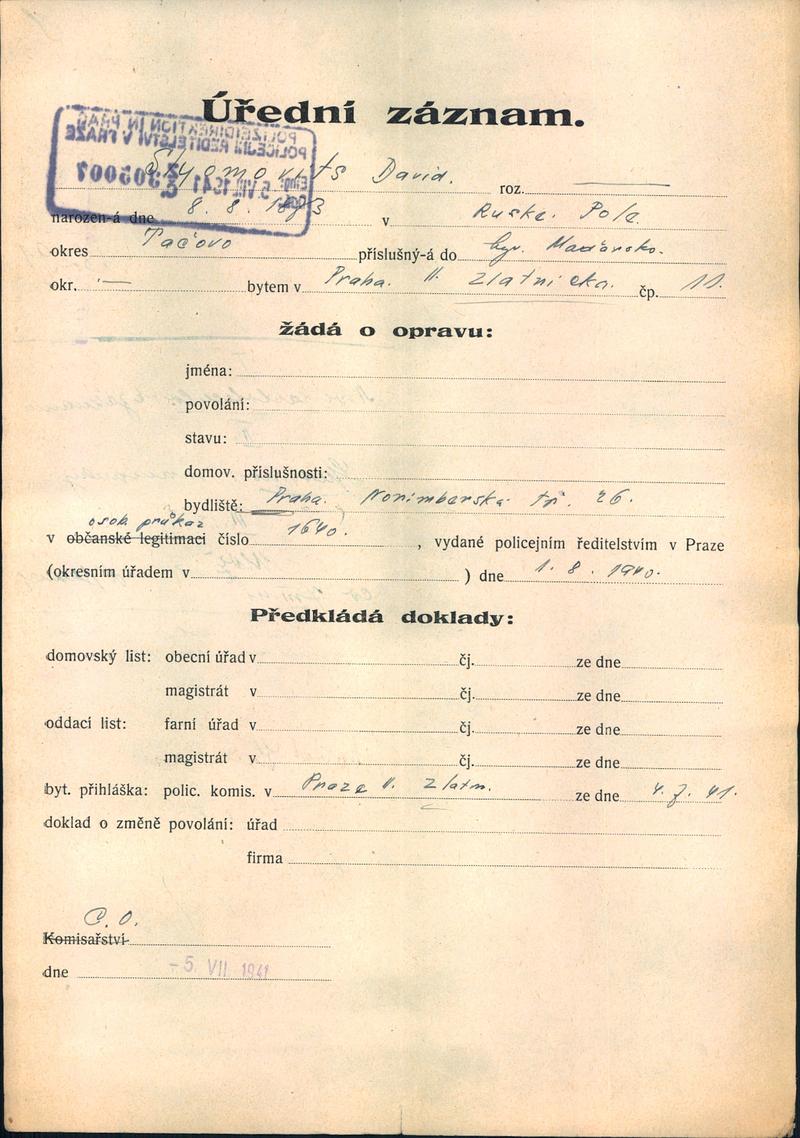 Úřední záznam.
POLIZEIDIREKTION IN PRAG
POLICEJNÍ ŘEDITELSTVÍ V PRAZE
5. VII. 1941
David. roz.
narozen-á dne 8. 8. 1893 v Ruské Pole
okres Tačovo příslušný-á do Maďarsko.
okr. — bytem v Praha. II. Zlatnická. čp. 11.
žádá o opravu:
jména:
povolání:
stavu:
domov. příslušnosti:
bydliště: Praha. Norimberská tř. 26.
osob. průkaz
v občanské legitimaci číslo 1640. , vydané policejním ředitelstvím v Praze
(okresním úřadem v ) dne 1. 8. 1940.
Předkládá doklady:
domovský list: obecní úřad v čj. ze dne
magistrát v čj. ze dne
oddací list: farní úřad v čj. ze dne
magistrát v čj. ze dne
byt. přihláška: polic. komis. v Praze II. Zlatn. ze dne 4. 7. 41.
doklad o změně povolání: úřad
firma
C. O.
Komisařství
dne -5. VII 1941